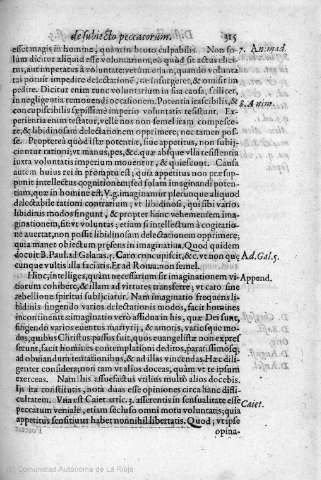 de subiecto peccatorum. 315
esset magis in homine, quàm in bruto culpabilis. Non so-
lum dicitur aliquid esse voluntarium, eò quòd sit actus elici-
tus, aut imperatus à voluntate: verùm etiam, quando volunta
tas potuit impedire delectationē, &
pedire. Dicitur enim tunc voluntarium in sua causa, scilicet,
in negligentia remouendi occationem. Potentia irascibilis, &
concupiscibilis sæpissimè imperio voluntatis resistunt. Ex-
perientia enim testatur, velle nos non semel iram compesce-
re, & libidinosam delectationem opprimere, nec tamen pos-
se. Propterea quòd istæ potentiæ, siue appetitus, non subij-
ciuntur rationi, vt manus, pes, &c. quæ absque vlla resistentia
iuxta voluntatis imperium mouentur, & quiescunt. Causa
autem huius rei in promptu est; quia appetitus non præsup-
ponit intellectus cognitionem, sed solam imaginandi poten-
tiam, quæ in homine est. V.g. imaginamur plerunque aliquod
delectabile rationi contrarium, vt libidinosi, quisibi varios
libidinis modos fingunt, & propter hanc vehementem ima-
ginationem, fit vt voluntas, etiam si intellectum à cogitatio-
ne auertat, non possit libidinosam delectationem opprimere,
quia manet obiectum præsens in imaginatiua. Quod quidem
docuit B. Paul. ad Gala. ca. 5. Caro concupiscit, &c. vt non quæ
cunque vultis illa faciatis. Et ad Roma. non semel.
Hinc, intelliges, quàm necessarium sit imaginationem vi-
tiorum cohibere, & illam ad virtutes transferre, vt caro sine
rebellione spiritui subijciatur. Nam imaginatio frequens li-
bidinis fingendo varios delectationis modos, facit homines
incontinentes: imaginatio verò assidua in his, quæ Dei sunt,
fingendo varios euentus martyrij, & amoris, variosque mo-
dos, quibus Christus passus fuit, quos euangelistæ non expres
serunt, facit homines contemplationi deditos, paratissimosq;
ad obruendum tentationibus, & ad illas vincendas. Hæc dili-
genter considera; non tam vt alios doceas, quàm vt te ipsum
exerceas. Nam his assuefactus vtilius multò alios docebis.
In ista constitutis, nota duas esse opiniones circa hanc diffi-
cultatem. Vna est Caiet. artic. 3. asserentis in sensualitate esse
peccatum veniale, etiam secluso omni motu voluntatis; quia
appetitus sensitiuus habet nonnihil libertatis. Quod, vt ipse
opina-
7. Animad.
8. Anim.
Ad. Gal. 5.
Append.
Caiet.
(c) Comunidad Autónoma de La Rioja